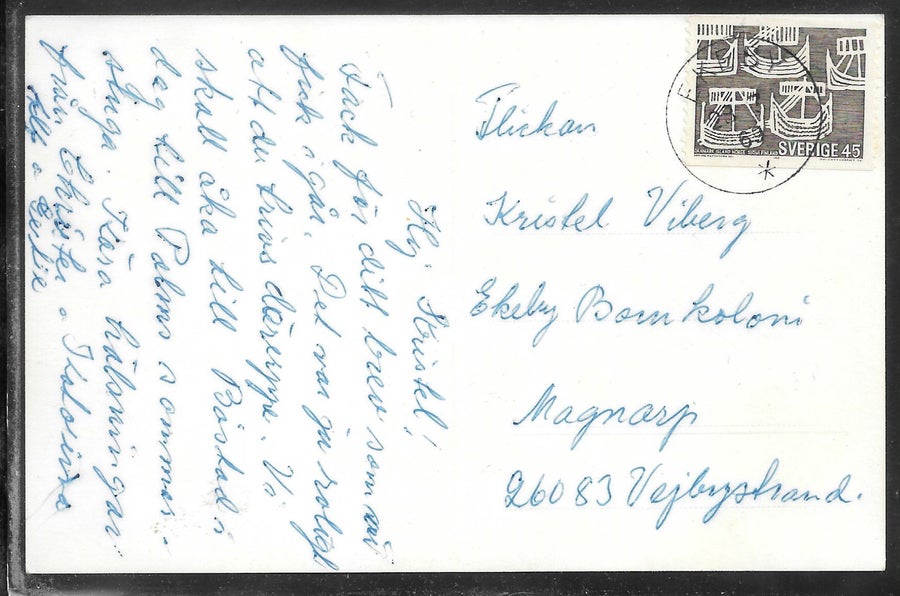 Hej. Kristel!
Tack för ditt brev som vi
fick igår. Det var ju roligt
att du trivs däruppe. Vi
skall åka till Båstad i
dag till Palms sommar-
stuga. Kära hälsningar
från Christer o
Flickan
Kristel Viberg
Ekeby Barnkoloni
Magnarp
26083 Vejbystrand.
SVERIGE 45
DANMARK ISLAND NORGE SUOMI FINLAND